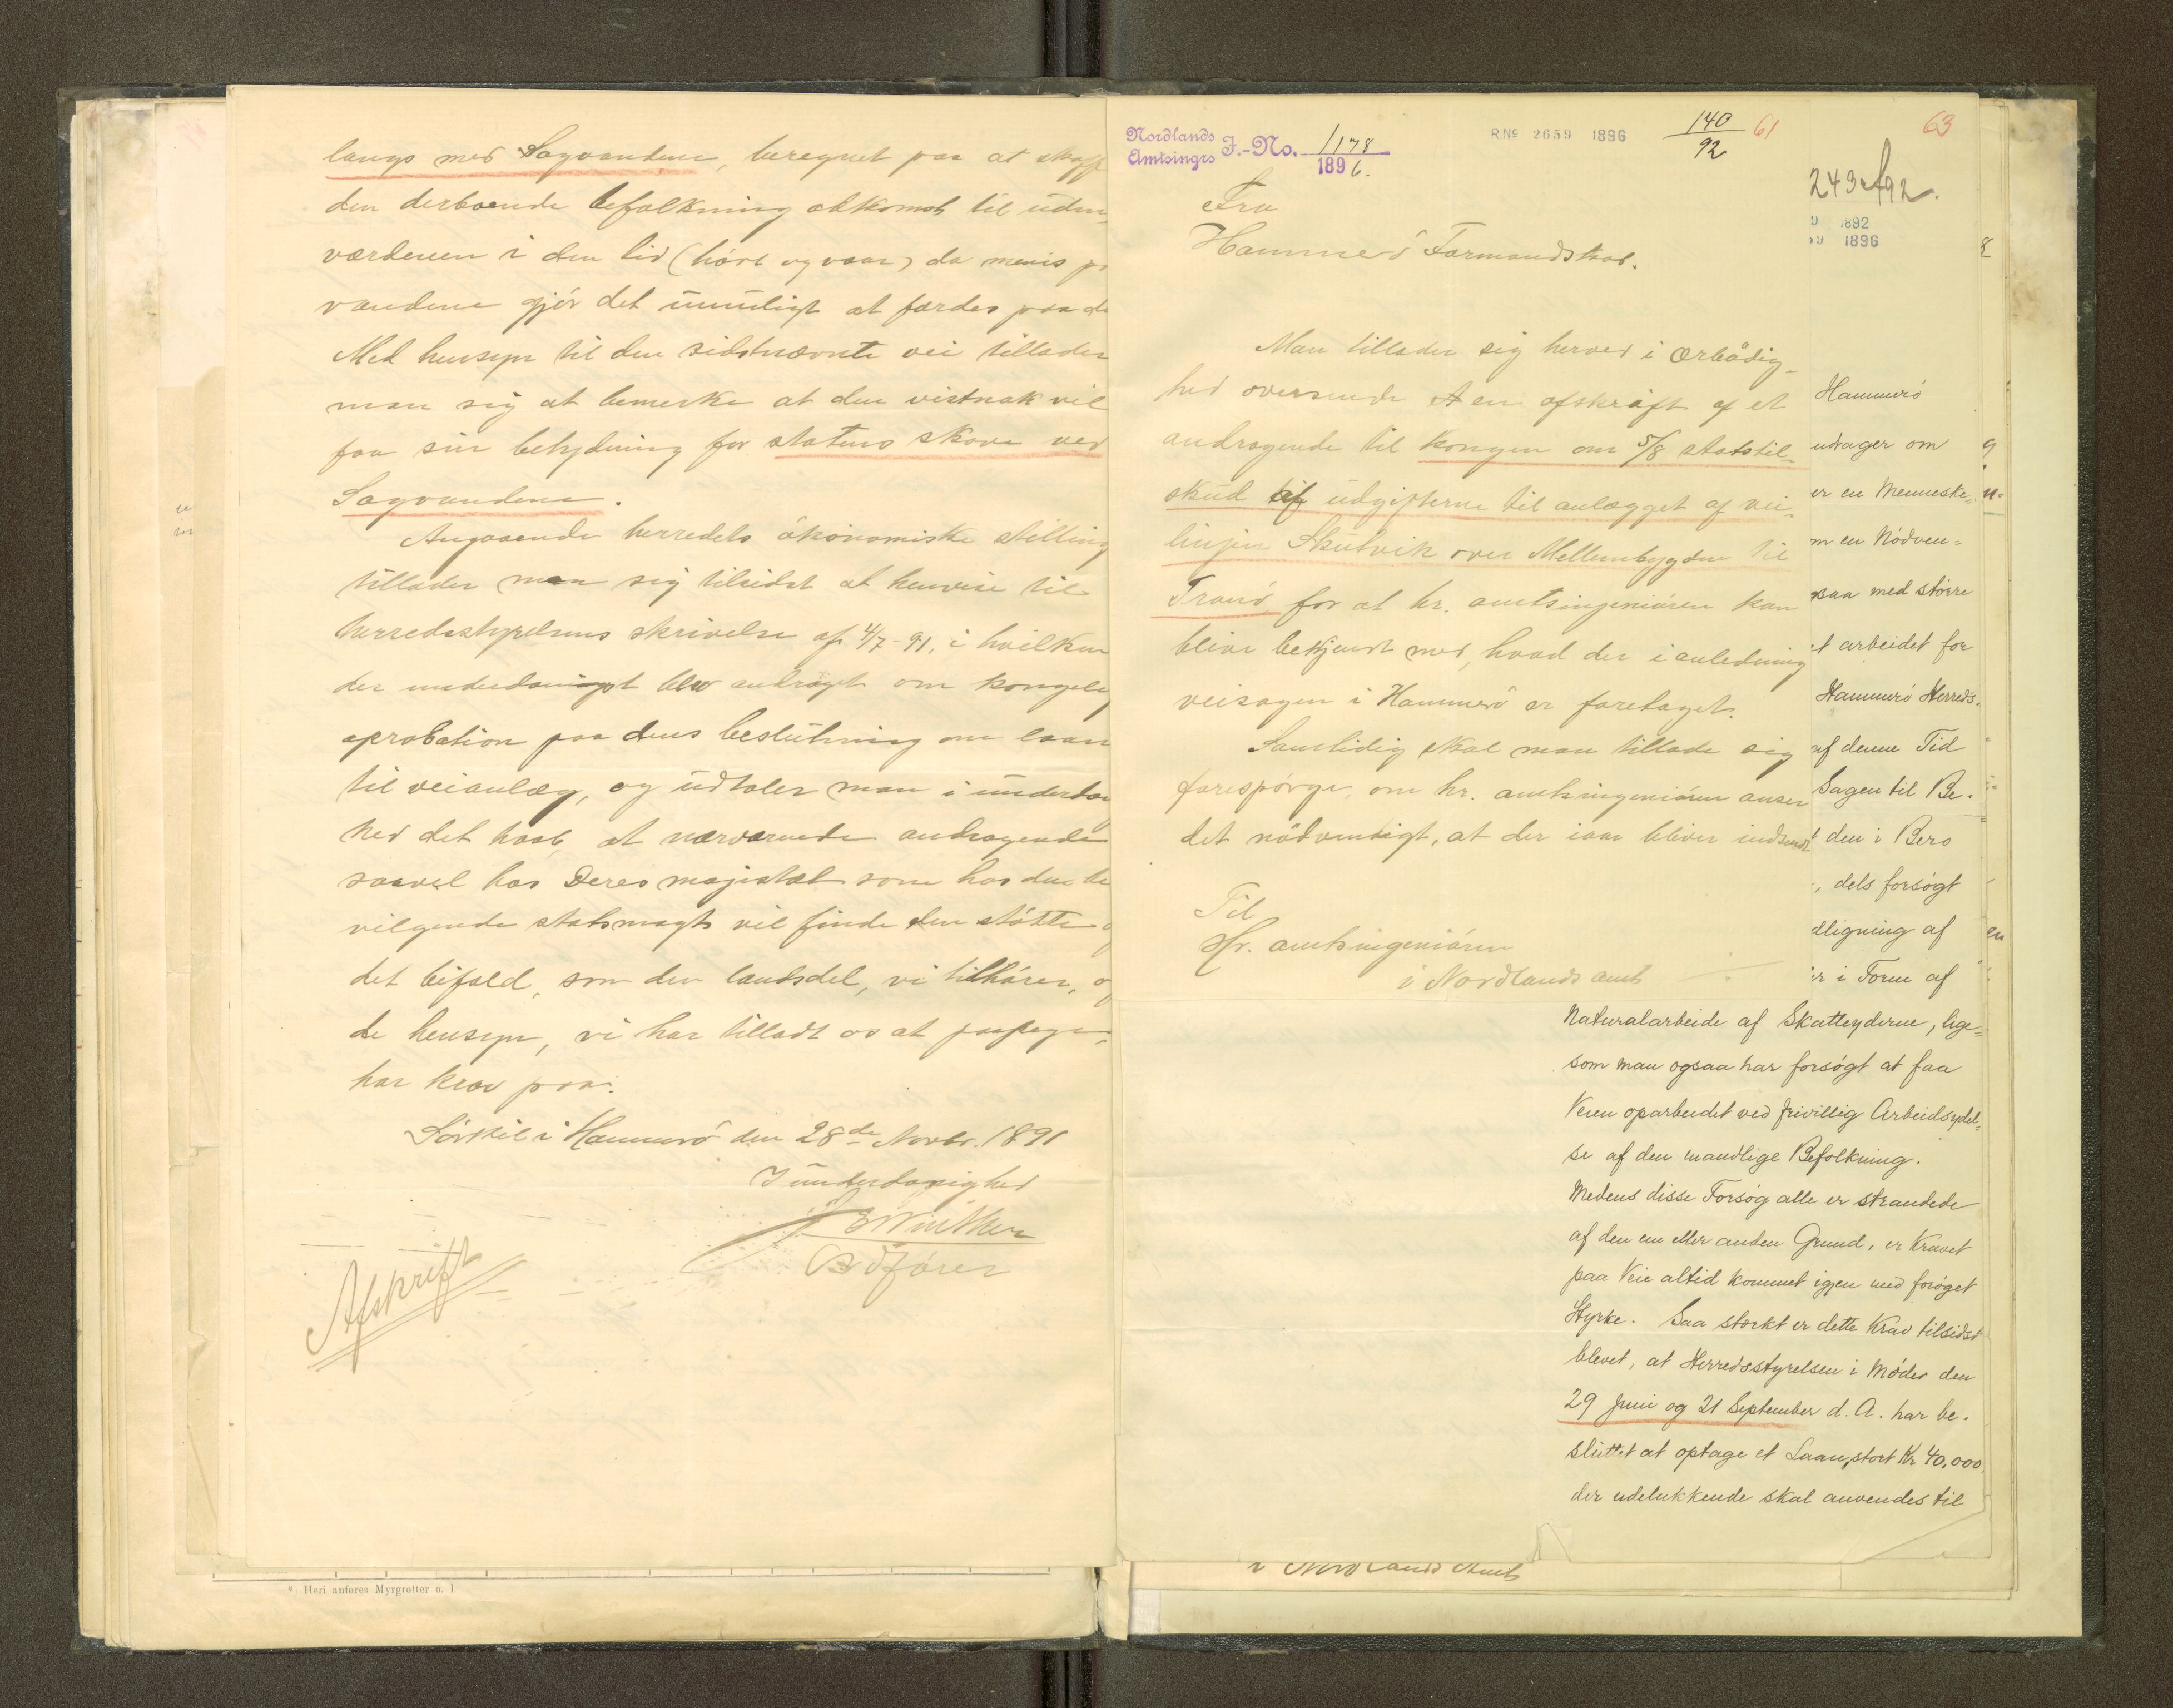 langs med Sagvandene, beregnet paa at skaff
den derboende befolkning atkomst til uden
verdenen i den tid (höst og vaar) da menis p
vandene gjör det umuligt at færdes paa d
Med hensyn til den sidstnævnte vei tillader
man sig at bemerke at den vistnok vil
faa sin betydning for statens skove ved
Sagvandene.
Angaaende herredets ökonomiske stilling
tillader man sig tilsidst at henvise til
herredsstyrelsens skrivelse af 4/7-91, i hvilken
der underdanigst blev andragt om kongelig
aprobation paa dens beslutning om laan
til veianlæg, og udtaler man i underdan
hed det haab, at nærværende andragende
saavel hos Deres majestæt som hos den be
vilgende statsmagt vil finde den stötte o
det bifald, som den landsdel, vi tilhörer, og
de hensyn, vi har tilladt os at paapege,
har krav paa.
Sörkil i Hammerö den 28de Novbr. 1891
I underdanighed
E Winther
Ordförer
Afskrift
* Heri anføres Myrgrøfter o. l
Nordlands
Amtsingrs J.-No. 1178
1896.
RNo 2659 1896
140
92
61
63
243/92.
9 1892
59 1896
Fra
Hammerö Formandskab.
Man tillader sig herved i ærbödig-
hed oversende en afskrift af et
andragende til kongen om 5/8 statstil-
skud af udgifterne til anlægget af vei-
linjen Skutvik over Mellembygden til
Tranö for at hr. amtsingeniören kan
blive bekjendt med, hvad der i anledning
veisagen i Hammerö er foretaget.
Samtidig skal man tillade sig
forespörge, om hr. amtsingeniören anser
det nödvendigt, at der iaar bliver indsendt
Til
Hr. amtsingeniören
i Nordlands amt
Hammerö
udrager om
er en Menneske=
m en Nödven=
saa med större
t arbeidet for
Hammerö Herreds.
af denne Tid
Sagen til Be.
den i Bero
, dels forsögt
dligning af
er i Form af
Naturalarbeide af Skatteyderne, lige=
som man ogsaa har forsögt at faa
Veien oparbeidet ved frivillig Arbeidsydel=
se af den mandlige Befolkning.
Medens disse Forsög alle er strandede
af den en eller anden Grund, er Kravet
paa Veie altid kommet igjen med foröget
Styrke. Saa stærkt er dette Krav tilsidst
blevet, at Herredsstyrelsen i Möder den
29 Juni og 21 September d. A. har be.
sluttet at optage et Laan, stort Kr 40,000
der udelukkende skal anvendes til
i Nordlands Amt